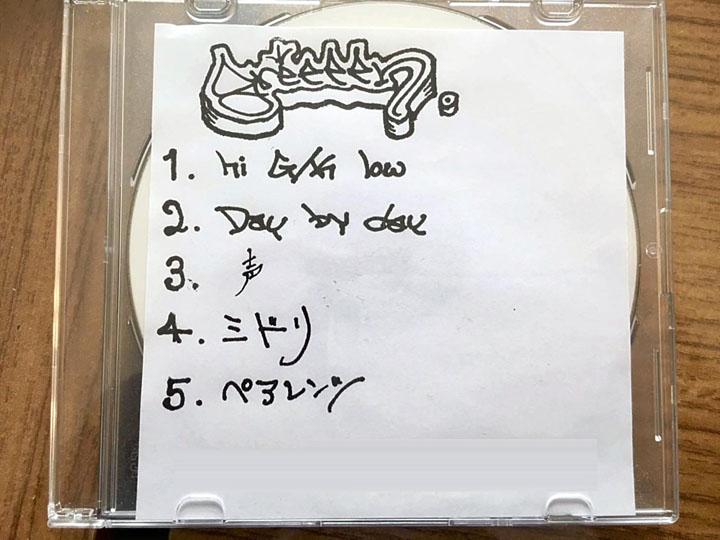 Greeeen?
1. Hi G/Gi low
2. Day by day
3. 声
4. ミドリ
5. ペアレンツ